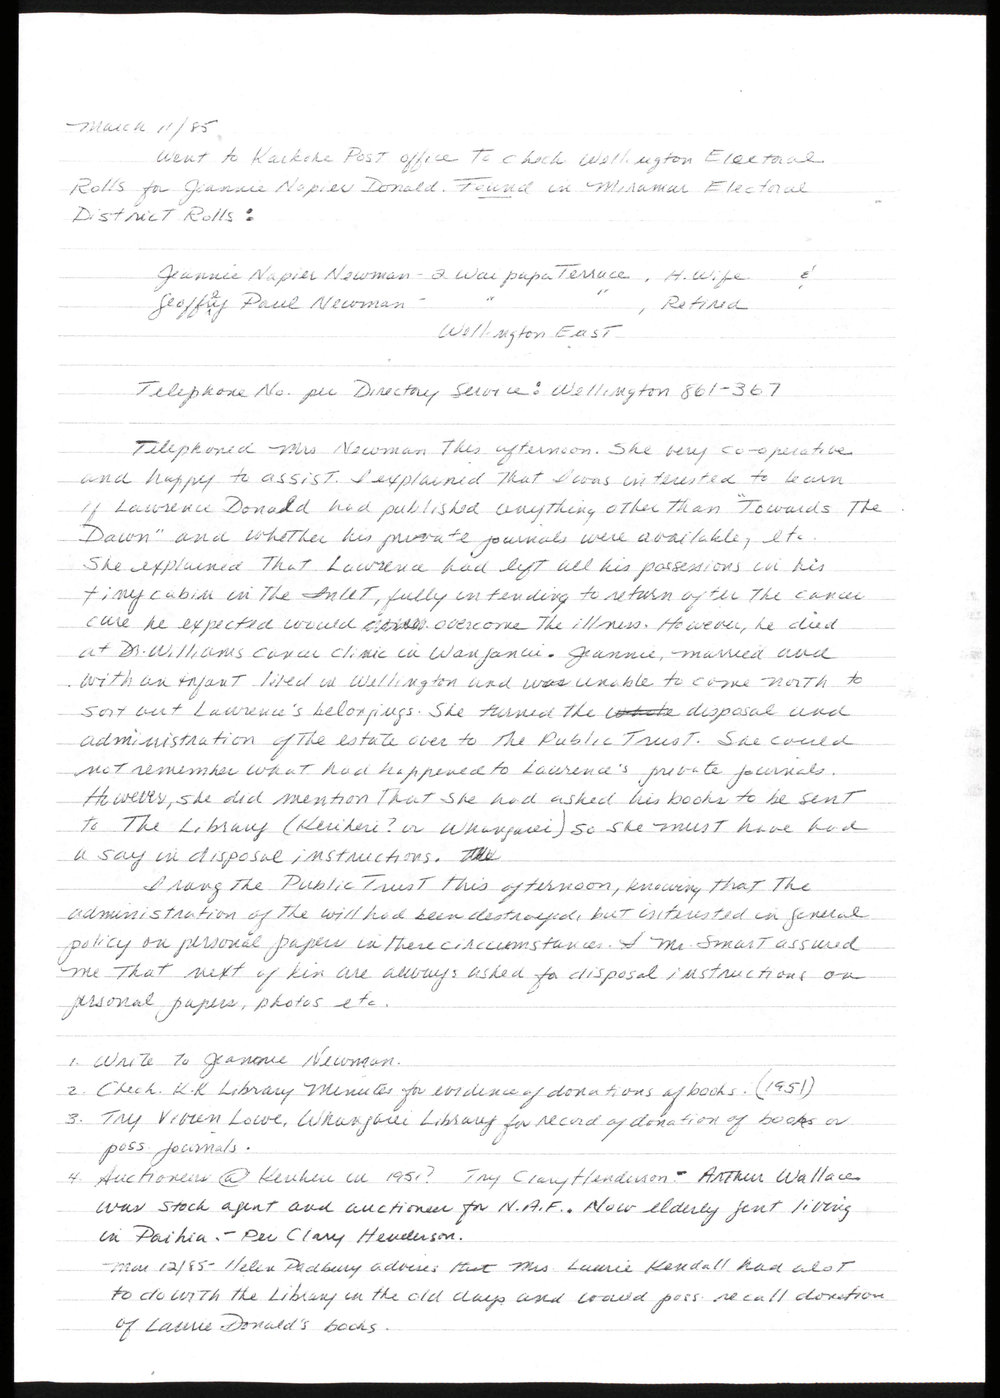 March 11/85
Went to Kaikohe Post office To check Wellington Electoral
Rolls for Jeannie Napier Donald. Found in Miramar Electoral
District Rolls:
Jeannie Napier Newman - 2 Waipapa Terrace, H.Wife &
Geoffrey Paul Newman - " ", Retired
Wellington East
Telephone No. per Directory Service: Wellington 861-367
Telephoned Mrs Newman This afternoon. She very co-operative
and happy to assist. I explained That I was interested to learn
if Lawrence Donald had published anything other Than "Towards The
Dawn" and whether his private journals were available, etc.
She explained That Lawrence had left all his possessions in his
tiny cabin in The Inlet, fully intending to return after The cancer
cure he expected would overcome The illness. However, he died
at Dr. Williams cancer clinic in Wanganui. Jeannie, married and
with an infant lived in Wellington and was unable to come north to
sort out Lawrence's belongings. She turned the whole disposal and
administration of the estate over to the Public Trust. She could
not remember what had happened to Lawrence's private journals.
However, she did mention That she had asked his books to be sent
to The Library (Kerikeri? or Whangarei) so she must have had
a say in disposal instructions. The
I rang The Public Trust this afternoon, knowing that The
administration of the will had been destroyed, but interested in general
policy on personal papers in these circumstances. A Mr. Smart assured
me That next of kin are always asked for disposal instructions on
personal papers, photos etc.
1. Write to Jeannie Newman.
2. Check. K.K Library Minutes for evidence of donations of books. (1951)
3. Try Vivien Lowe, Whangarei Library for record of donation of books or
poss. journals.
4. Auctioneers @ Kerikeri in 1951? Try Clary Henderson - Arthur Wallace
was stock agent and auctioneer for N.A.F.. Now elderly gent living
in Paihia. - Per Clary Henderson.
Mar 12/85 - Helen Padbury advises that Mrs Laurie Kendall had alot
to do with the Library in the old days and would poss. recall donation
of Laurie Donald's books.